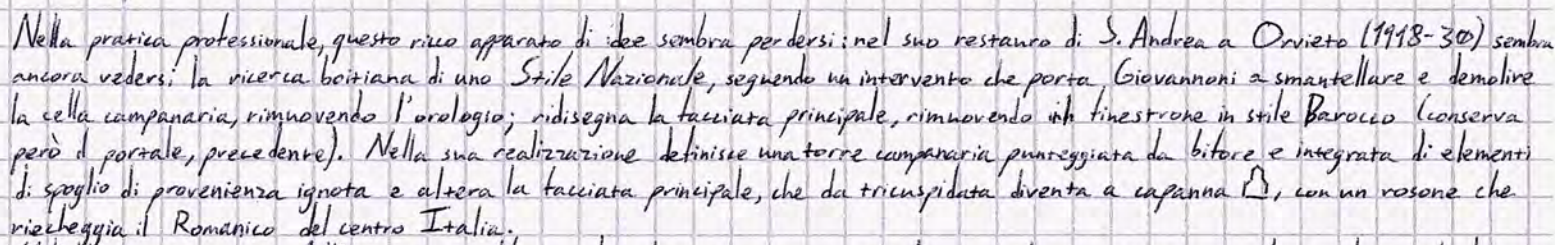 Nella pratica professionale, questo ricco apparato di idee sembra perdersi: nel suo restauro di S. Andrea a Orvieto (1918-30) sembra
ancora vedersi la ricerca boitiana di uno Stile Nazionale, seguendo un intervento che porta Giovannoni a smantellare e demolire
la cella campanaria, rimuovendo l'orologio; ridisegna la facciata principale, rimuovendo finestrone in stile Barocco (conserva
però il portale, precedente). Nella sua realizzazione definisce una torre campanaria punteggiata da bifore e integrata di elementi
di spoglio di provenienza ignota e altera la facciata principale, che da tricuspidata diventa a capanna, con un rosone che
riecheggia il Romanico del centro Italia.